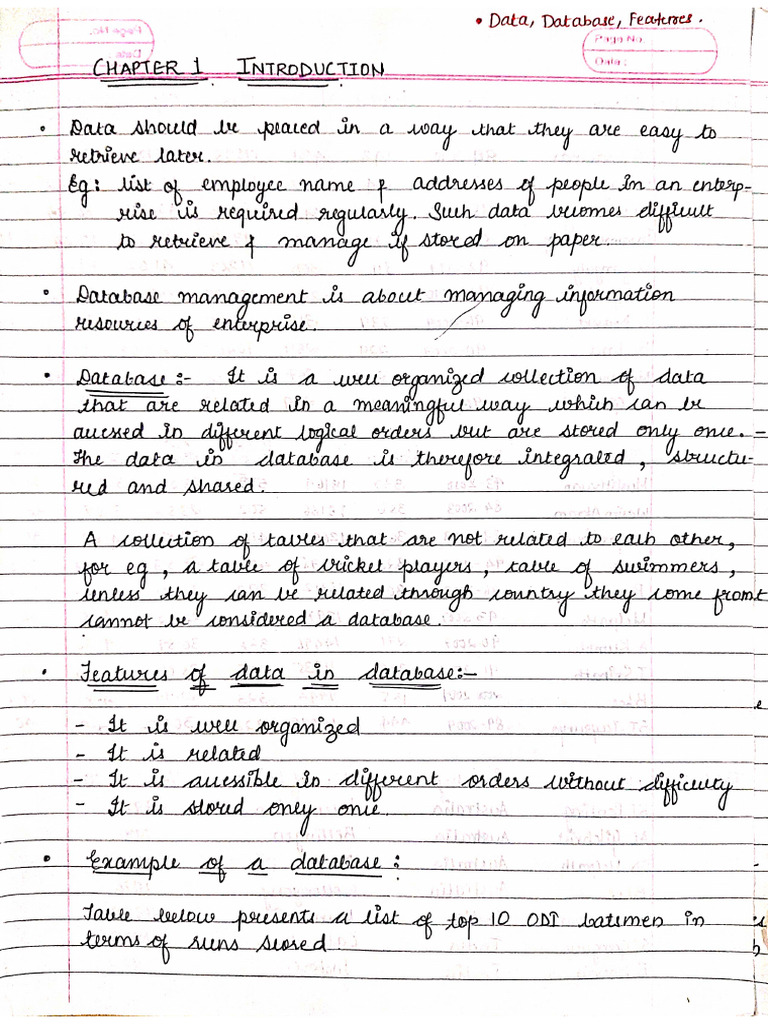 • Data, Database, Features.
Page No.
Date:
CHAPTER 1 INTRODUCTION
• Data should be placed in a way that they are easy to
retrieve later.
Eg: list of employee name & addresses of people in an enterp-
rise is required regularly. Such data becomes difficult
to retrieve & manage if stored on paper.
• Database management is about managing information
resources of enterprise.
• Database:- It is a well organized collection of data
that are related in a meaningful way which can be
accessed in different logical orders but are stored only once. -
The data in database is therefore integrated, structu-
red and shared.
A collection of tables that are not related to each other,
for eg, a table of cricket players, table of swimmers,
unless they can be related through country they come from
cannot be considered a database.
• Features of data in database:-
- It is well organized
- It is related
- It is accessible in different orders without difficulty
- It is stored only once.
• Example of a database:
Table below presents a list of top 10 ODI batsmen in
terms of runs scored